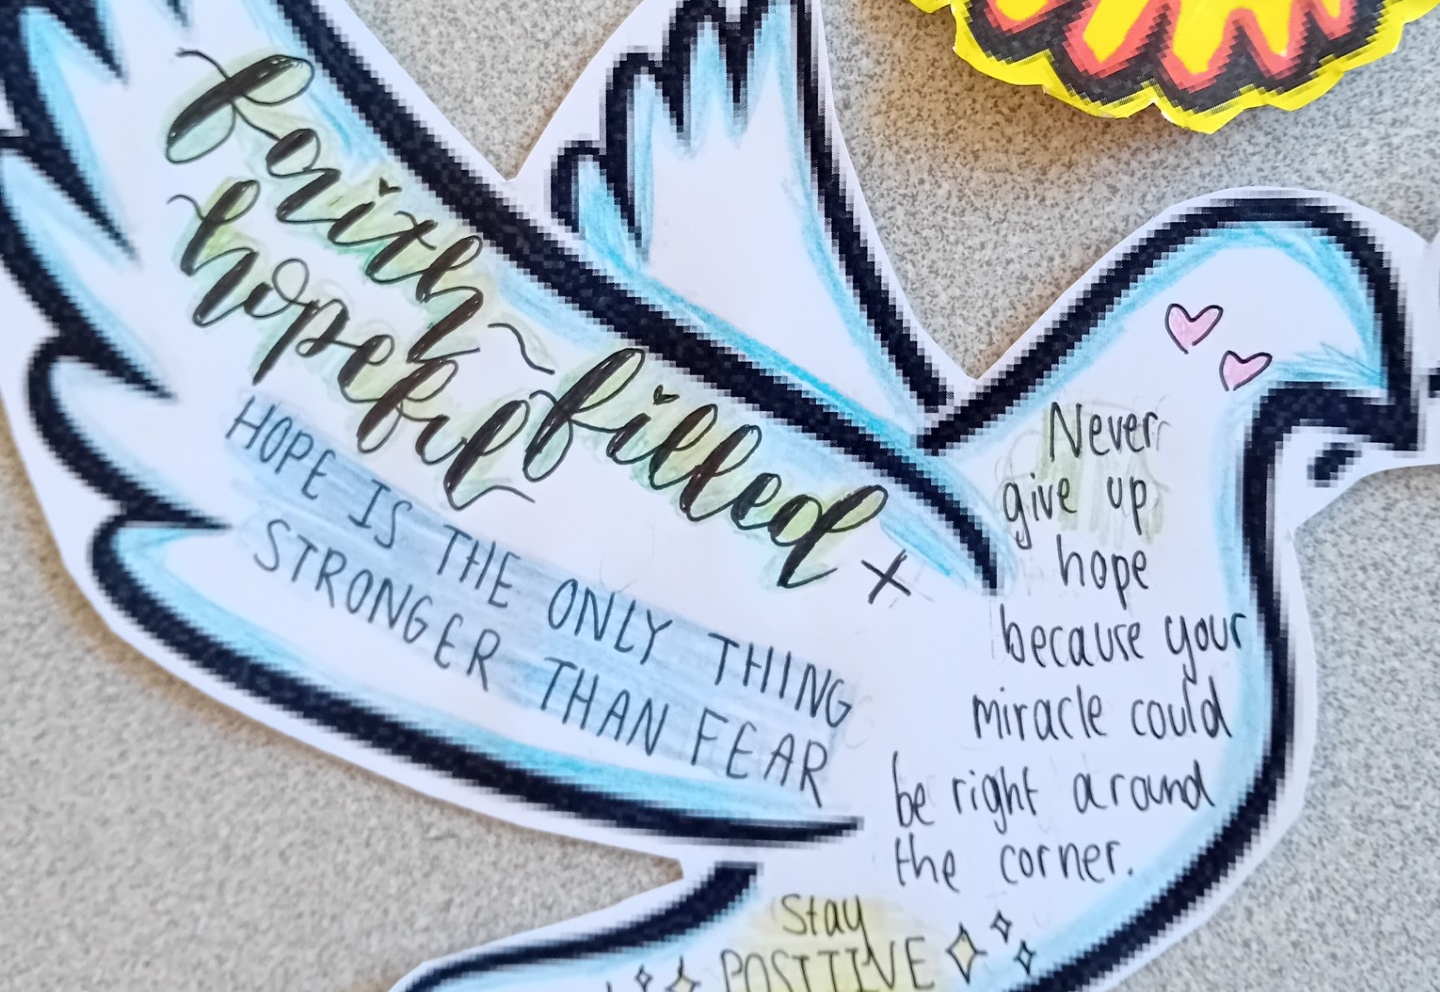 faith-filled +
hopeful
HOPE IS THE ONLY THING
STRONGER THAN FEAR
Never
give up
hope
because your
miracle could
be right around
the corner.
Stay
POSITIVE